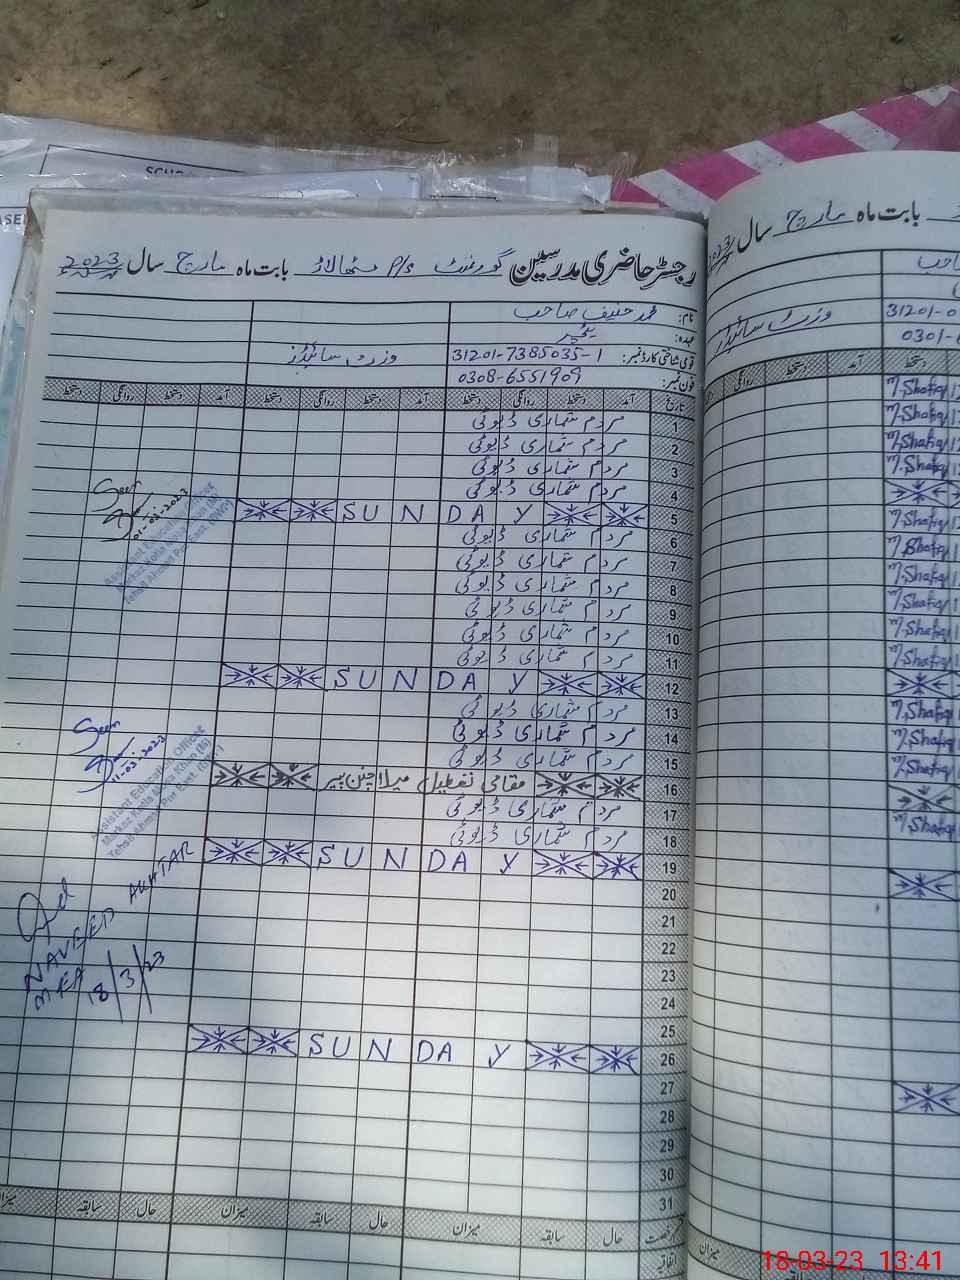 SCHO
رجسٹر حاضری مدرسین گورنمنٹ P/S بابت ماہ مارچ سال 2023
نام: محمد حنیف صاحب
عہدہ: ٹیچر
قومی شناختی کارڈ نمبر: 31201-7385035-1 وزٹ سائیڈز
فون نمبر: 0308-6551909
تاریخ آمد دستخط روانگی دستخط آمد دستخط روانگی دستخط آمد دستخط روانگی دستخط
1 مردم شماری ڈیوٹی
2 مردم شماری ڈیوٹی
3 مردم شماری ڈیوٹی
4 مردم شماری ڈیوٹی
5 SUNDAY
6 مردم شماری ڈیوٹی
7 مردم شماری ڈیوٹی
8 مردم شماری ڈیوٹی
9 مردم شماری ڈیوٹی
10 مردم شماری ڈیوٹی
11 مردم شماری ڈیوٹی
12 SUNDAY
13 مردم شماری ڈیوٹی
14 مردم شماری ڈیوٹی
15 مردم شماری ڈیوٹی
16 مقامی تعطیل میلا چنن پیر
17 مردم شماری ڈیوٹی
18 مردم شماری ڈیوٹی
19 SUNDAY
20
21
22
23
24
25
26 SUNDAY
27
28
29
30
31
حال سابقہ میزان حال سابقہ میزان حال سابقہ میزان
اتفاقیہ
Seen
01-03-2023
Assistant Education Officer
Seen
11-03-2023
Assistant Education Officer
NAVEED AKHTAR
MEA 18/3/23
بابت ماہ مارچ سال 2023
31201-0
وزٹ سائیڈز
0301-
دستخط آمد دستخط روانگی
M.Shafiq
M.Shafiq
M.Shafiq
M.Shafiq
M.Shafiq
M.Shafiq
M.Shafiq
M.Shafiq
M.Shafiq
M.Shafiq
M.Shafiq
M.Shafiq
M.Shafiq
M.Shafiq
میزان
18-03-23 13:41